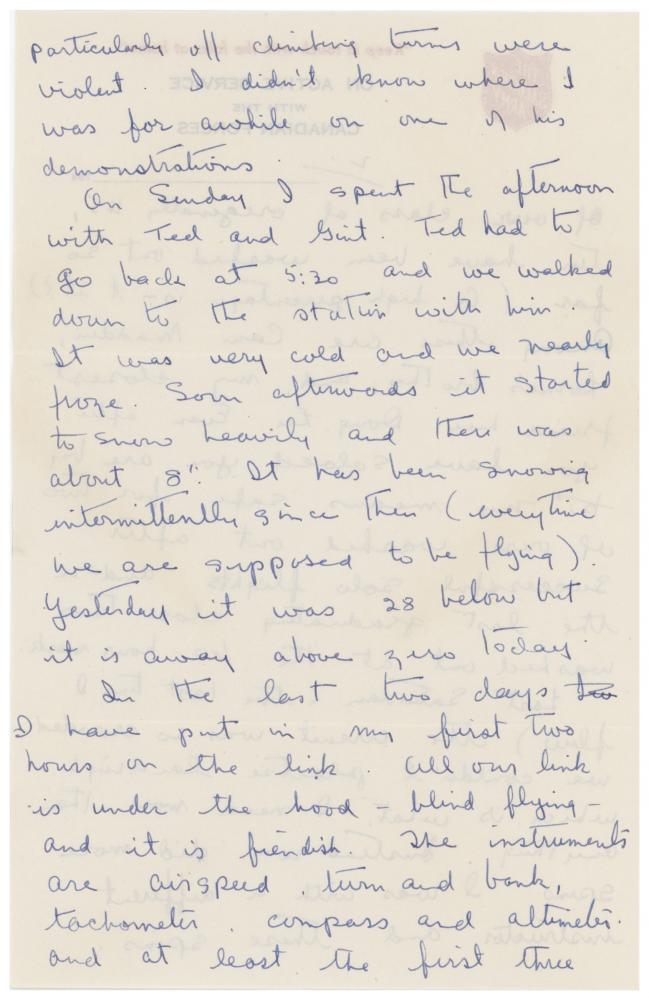 particularly all climbing turns were
violent. I didn't know where I
was for awhile on one of his
demonstrations.
On Sunday I spent the afternoon
with Ted and Gint. Ted had to
go back at 5:30 and we walked
down to the station with him.
It was very cold and we nearly
froze. Soon afterwards it started
to snow heavily and there was
about 8". It has been snowing
intermittently since then (everytime
we are supposed to be flying).
Yesterday it was 28 below but
it is away above zero today.
In the last two days
I have put in my first two
hours on the link. All our link
is under the hood - blind flying -
and it is fiendish. The instruments
are airspeed, turn and bank,
tachometer, compass and altimeter.
and at least the first three